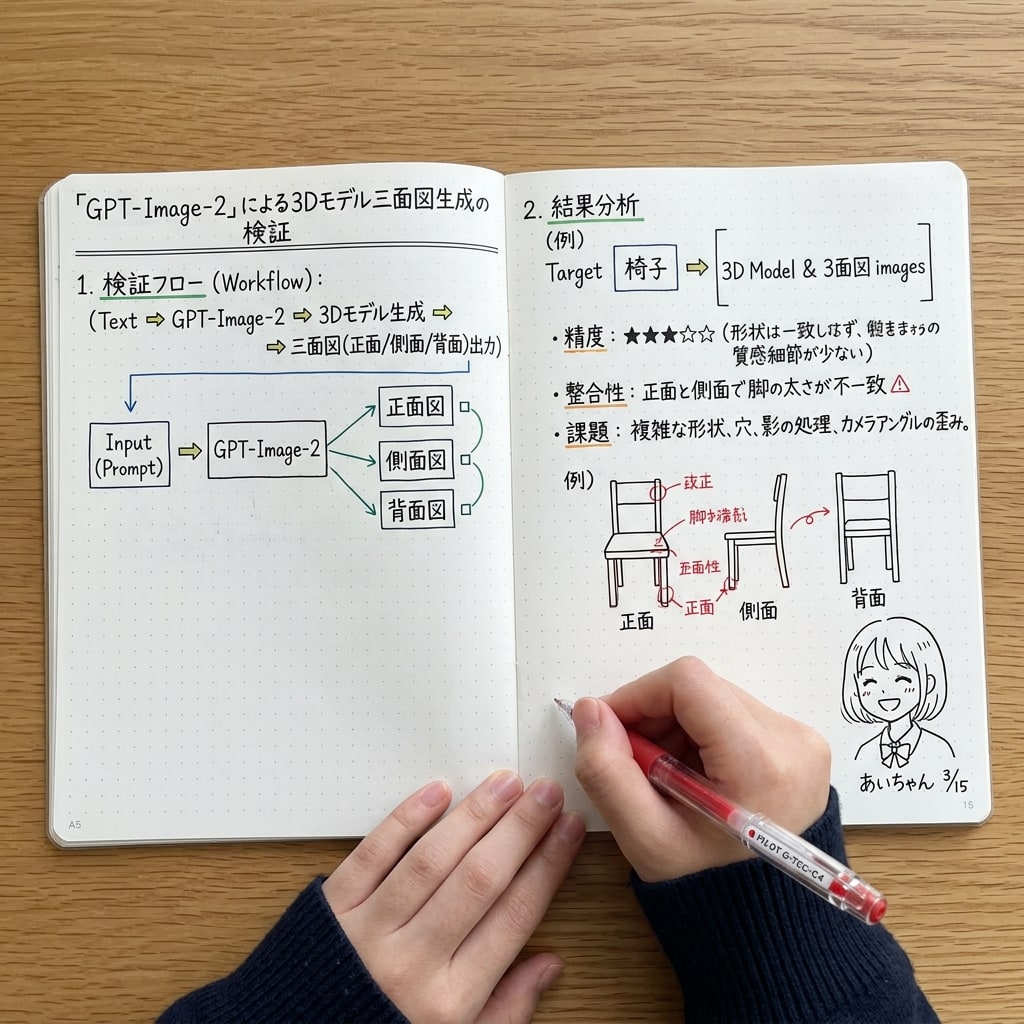 「GPT-Image-2」による3Dモデル三面図生成の
検証
1. 検証フロー (Workflow):
(Text ⇒ GPT-Image-2 ⇒ 3Dモデル生成 ⇒
⇒ 三面図(正面/側面/背面)出力)
Input
(Prompt)
GPT-Image-2
正面図
側面図
背面図
A5
2. 結果分析
(例)
Target 椅子 ⇒ [3D Model & 3面図 images]
・精度: ★★★☆☆ (形状は一致しはず、
質感細節が少ない)
・整合性: 正面と側面で脚の太さが不一致 ⚠
・課題: 複雑な形状、穴、影の処理、カメラアングルの歪み。
例)
正面
正面
側面
背面
あいちゃん 3/15
15
PILOT G-TEC-C4